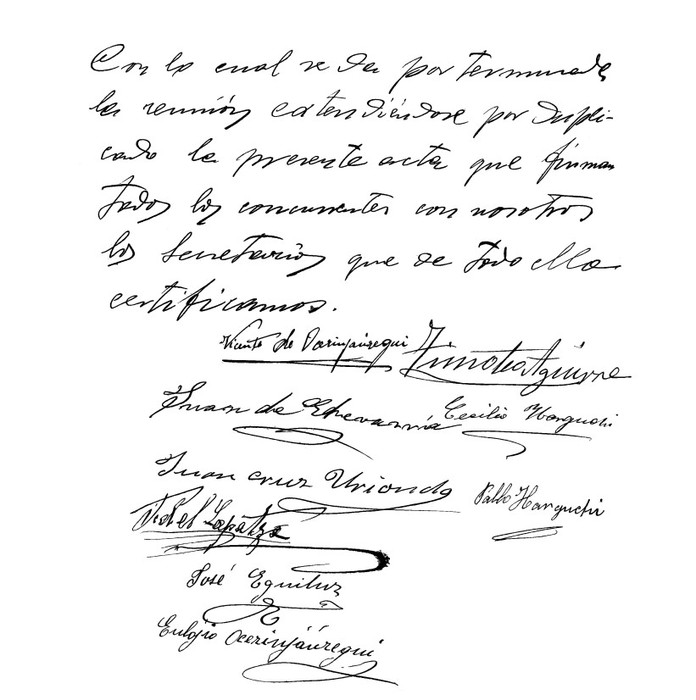 Con lo cual se da por terminada
la reunión extendiéndose por dupli-
cado la presente acta que firman
todos los concurrentes con nosotros
los Secretarios que de todo ello
certificamos.
Vicente de
Timoteo Aguirre
Juan de Echevarria
Cecilio
Juan Cruz Uriondo
Pablo
Fidel
José Eguiluz
Eulogio